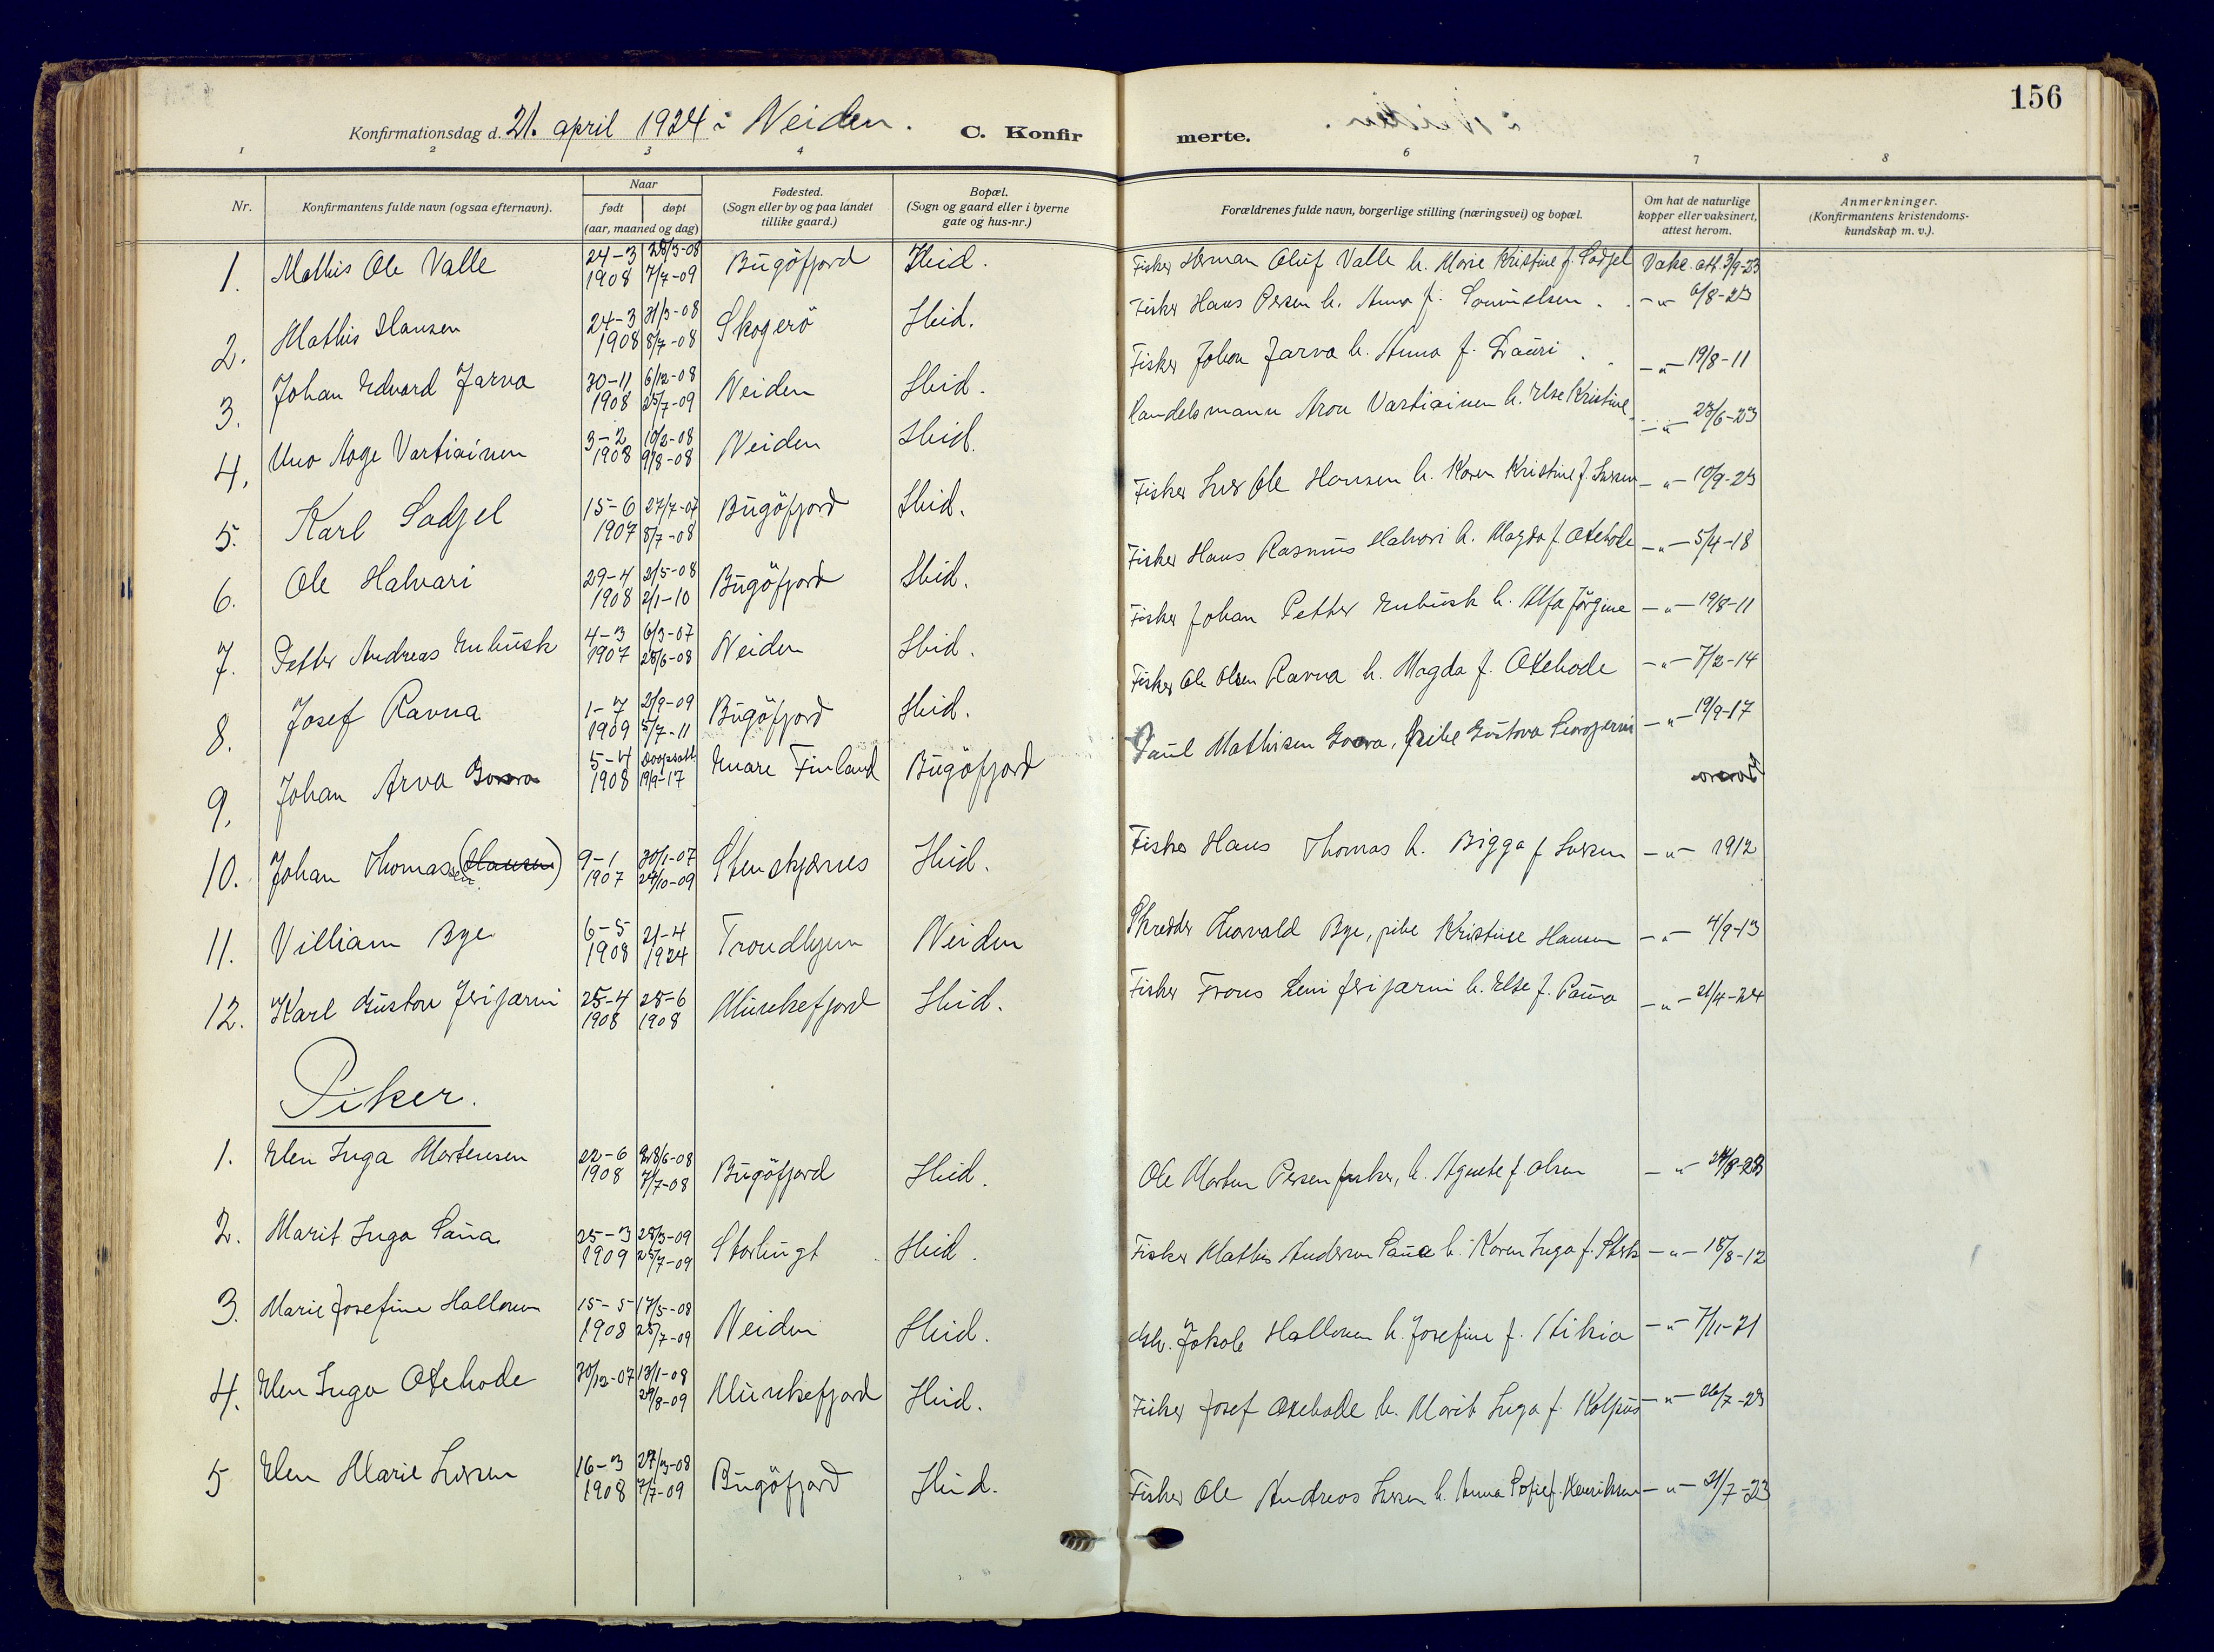 156
Konfirmationsdag d. 21. april 1924 i Neiden. C. Konfir merte.
1 2 3 4 6 7 8
Nr.
Konfirmantens fulde navn (ogsaa efternavn).
Naar
født døpt
(aar, maaned og dag)
Fødested.
(Sogn eller by og paa landet
tillike gaard.)
Bopæl.
(Sogn og gaard eller i byerne
gate og hus-nr.)
Forældrenes fulde navn, borgerlige stilling (næringsvei) og bopæl.
Om hat de naturlige
kopper eller vaksinert,
attest herom.
Anmerkninger.
(Konfirmantens kristendoms-
kundskap m. v.).
1. Mathis Ole Valle 24-3 1908 28/3-08 7/7-09 Bugöfjord Ibid. Fisker Herman Oluf Valle h. Marie Kristine f. Sadjel Vakc. att. 3/9-23
2. Mathis Hansen 24-3 1908 31/3-08 8/7-08 Skogerö Ibid. Fisker Hans Persen h. Anna f. -"- 6/8-23
3. Johan Edvard Jarva 30-11 1908 6/12-08 25/7-09 Neiden Ibid. Fisker Johan Jarva h. Anna f. Lauri -"- 19/8-11
4. Uno Aage Vartiainen 3-2 1908 10/2-08 9/8-08 Neiden Ibid. Handelsmann Aron Vartiainen h. Else Kristine -"- 23/6-23
5. Karl Sadjel 15-6 1907 27/7-07 8/7-08 Bugöfjord Ibid. Fisker Iver Ole Hansen h. Karen Kristine f. Iversen -"- 10/9-23
6. Ole Halvari 29-4 1908 2/5-08 2/1-10 Bugöfjord Ibid. Fisker Hans Rasmus Halvari h. Magda f. Oxehode -"- 5/4-18
7. Petter Andreas Enbusk 4-3 1907 6/3-07 28/6-08 Neiden Ibid. Fisker Johan Petter Enbusk h. Alfa Jörgine -"- 19/8-11
8. Josef Ravna 1-7 1909 2/9-09 5/7-11 Bugöfjord Ibid. Fisker Ole Olsen Ravna h. Magda f. Oxehode -"- 7/2-14
9. Johan Arva 5-4 1908 19/9-17 Enare Finland Bugöfjord Paul Mathisen pike Gustava -"- 19/9-17
10. Johan Thomassen (Hansen) 9-1 1907 30/1-07 24/10-09 Stenskjærnes Ibid. Fisker Hans Thomas h. Bigga f Iversen -"- 1912
11. Villiam Bye 6-5 1908 21-4 1924 Trondhjem Neiden Skredder Thorvald Bye, pike Kristine Hansen -"- 4/9-13
12. Karl Gustav Jerijærvi 25-4 1908 28-6 1908 Munkefjord Ibid. Fisker Frans Leni Jerijærvi h. Else f. Pauna -"- 21/4-24
Piker.
1. Elen Inga Mortensen 22-6 1908 28/6-08 7/7-08 Bugöfjord Ibid. Ole Morten Persen fisker, h. Agnete f. Olsen -"- 24/8-23
2. Marit Inga Saua 25-3 1909 28/3-09 25/7-09 Ibid. Fisker Mathis Andersen Saua h. Karen Inga f. -"- 18/8-12
3. Marie Josefine Hallonen 15-5 1908 17/5-08 25/7-09 Neiden Ibid. Jakob Hallonen h. Josefine f. -"- 7/11-21
4. Elen Inga Oxehode 30/12-07 13/1-08 29/8-09 Munkefjord Ibid. Fisker Josef Oxehode h. Marit Inga f. Kolpus -"- 26/7-23
5 Elen Marie Iversen 16-3 1908 29/3-08 7/7-09 Bugöfjord Ibid. Fisker Ole Andreas Iversen h. Anna Sofie f. Henriksen -"- 21/7-23